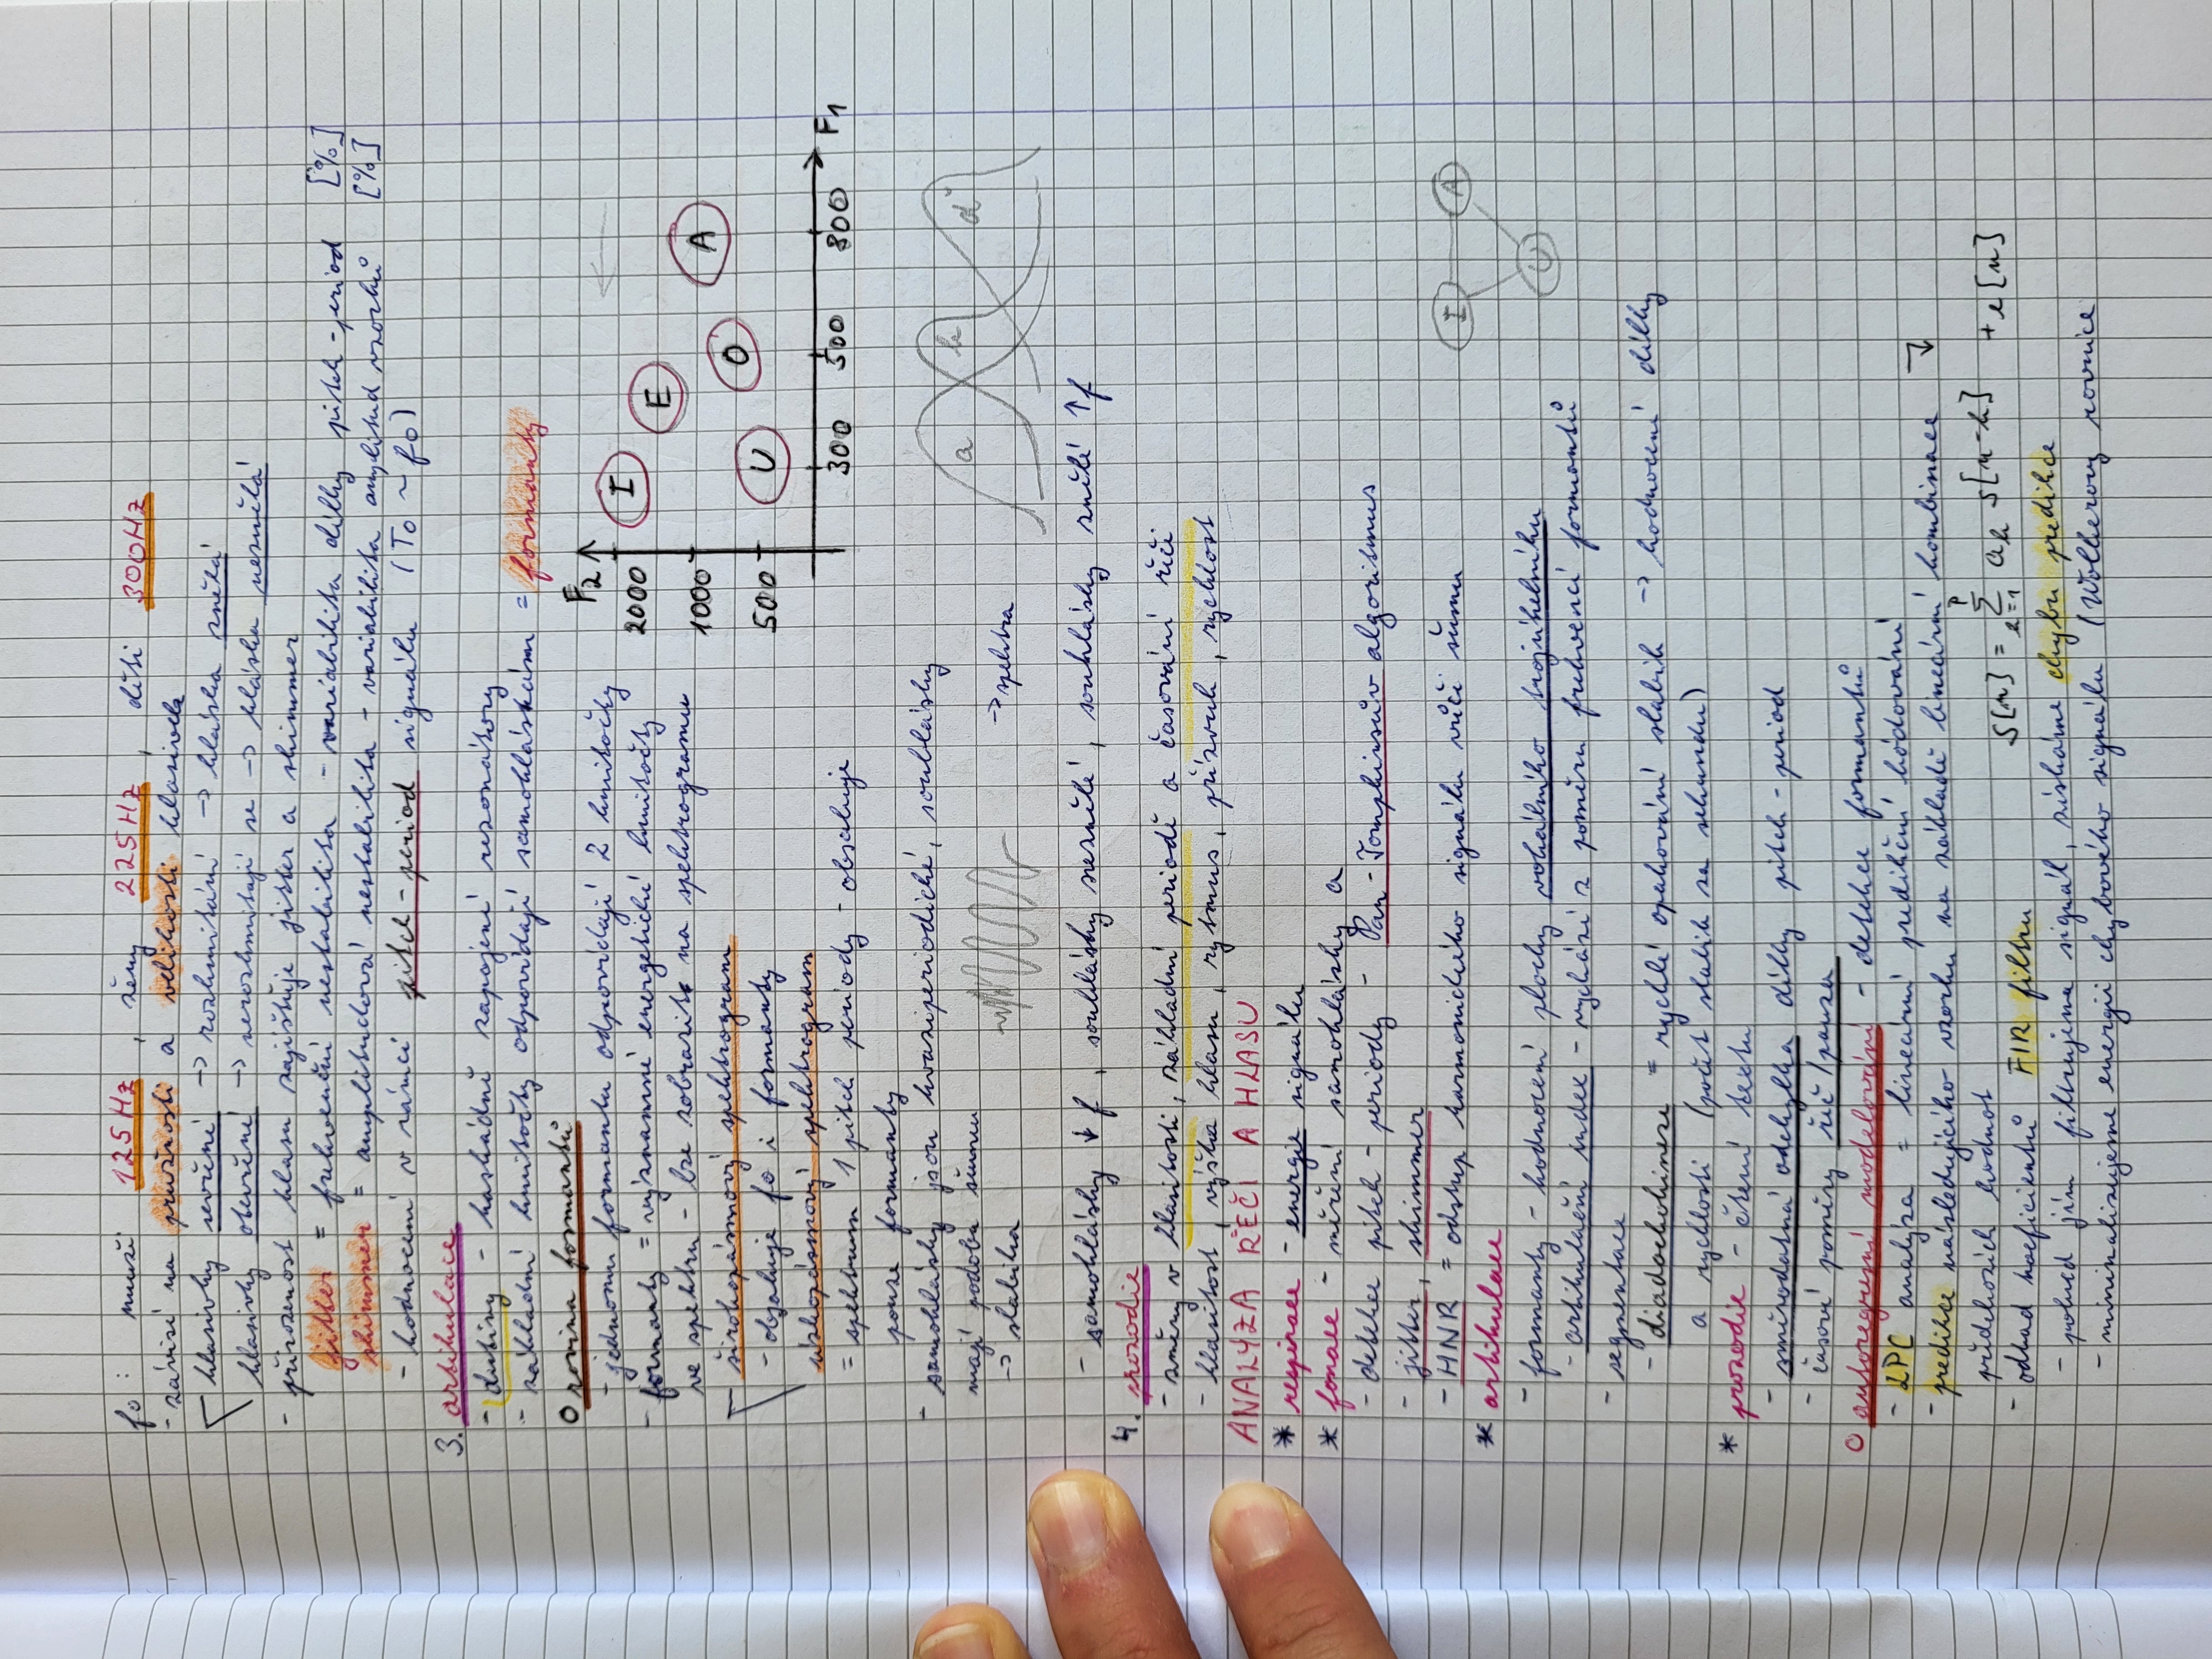 f0: muži 125Hz, ženy 225Hz, děti 300Hz
- závisí na pružnosti a velikosti hlasivek
hlasivky sevřené -> rozkmitání -> hláska znělá
hlasivky otevřené -> nerozkmitají se -> hláska neznělá
- přirozenost hlasu zajišťuje jitter a shimmer
jitter = frekvenční nestabilita - variabilita délky pitch-period [%]
shimmer = amplitudová nestabilita - variabilita amplitud vzorků [%]
- hodnocení v rámci pitch-period signálu (T0 ~ f0)
3. artikulace
- dutiny - kaskádně zapojené rezonátory
- základní kmitočty odpovídají samohláskám = formanty
O rovina formantů
- jednomu formantu odpovídají 2 kmitočty
- formanty = významné energetické kmitočty
ve spektru - lze zobrazit na spektrogramu
širokopásmový spektrogram
- obsahuje f0 i formanty
úzkopásmový spektrogram
= spektrum 1 pitch periody - obsahuje
pouze formanty
F2
2000
1000
500
I
E
A
O
U
300 500 800 F1
- samohlásky jsou kvaziperiodické, souhlásky
mají podobu šumu
-> slabika
-> spektra
a k d
- samohlásky ↓f, souhlásky neznělé, souhlásky znělé ↑f
4. prozodie
- změny v hlasitosti, základní periodě a časování řeči
- hlasitost, výška hlasu, rytmus, přízvuk, rychlost
ANALÝZA ŘEČI A HLASU
* respirace - energie signálu
* fonace - měření samohlásky a
- detekce pitch-periody - Pan-Tompkinsův algoritmus
- jitter, shimmer
- HNR = odstup harmonického signálu vůči šumu
* artikulace
- formanty - hodnocení plochy vokálního trojúhelníku
I A
U
- artikulační index - vychází z poměru frekvencí formantů
- segmentace
- diadochokineze = rychlé opakování slabik -> hodnocení délky
a rychlosti (počet slabik za sekundu)
* prozodie - čtení textu
- směrodatná odchylka délky pitch-period
- časové poměry řeč/pauza
O autoregresní modelování - detekce formantů
- LPC analýza = lineární predikční kódování
- predikce následujícího vzorku na základě lineární kombinace
předchozích hodnot
s[n] = Σ_{k=1}^{P} a_k s[n-k] + e[n]
- odhad koeficientů FIR filtru
- pokud jím filtrujeme signál, získáme chybu predikce
- minimalizujeme energii chybového signálu (Wolkerovy rovnice